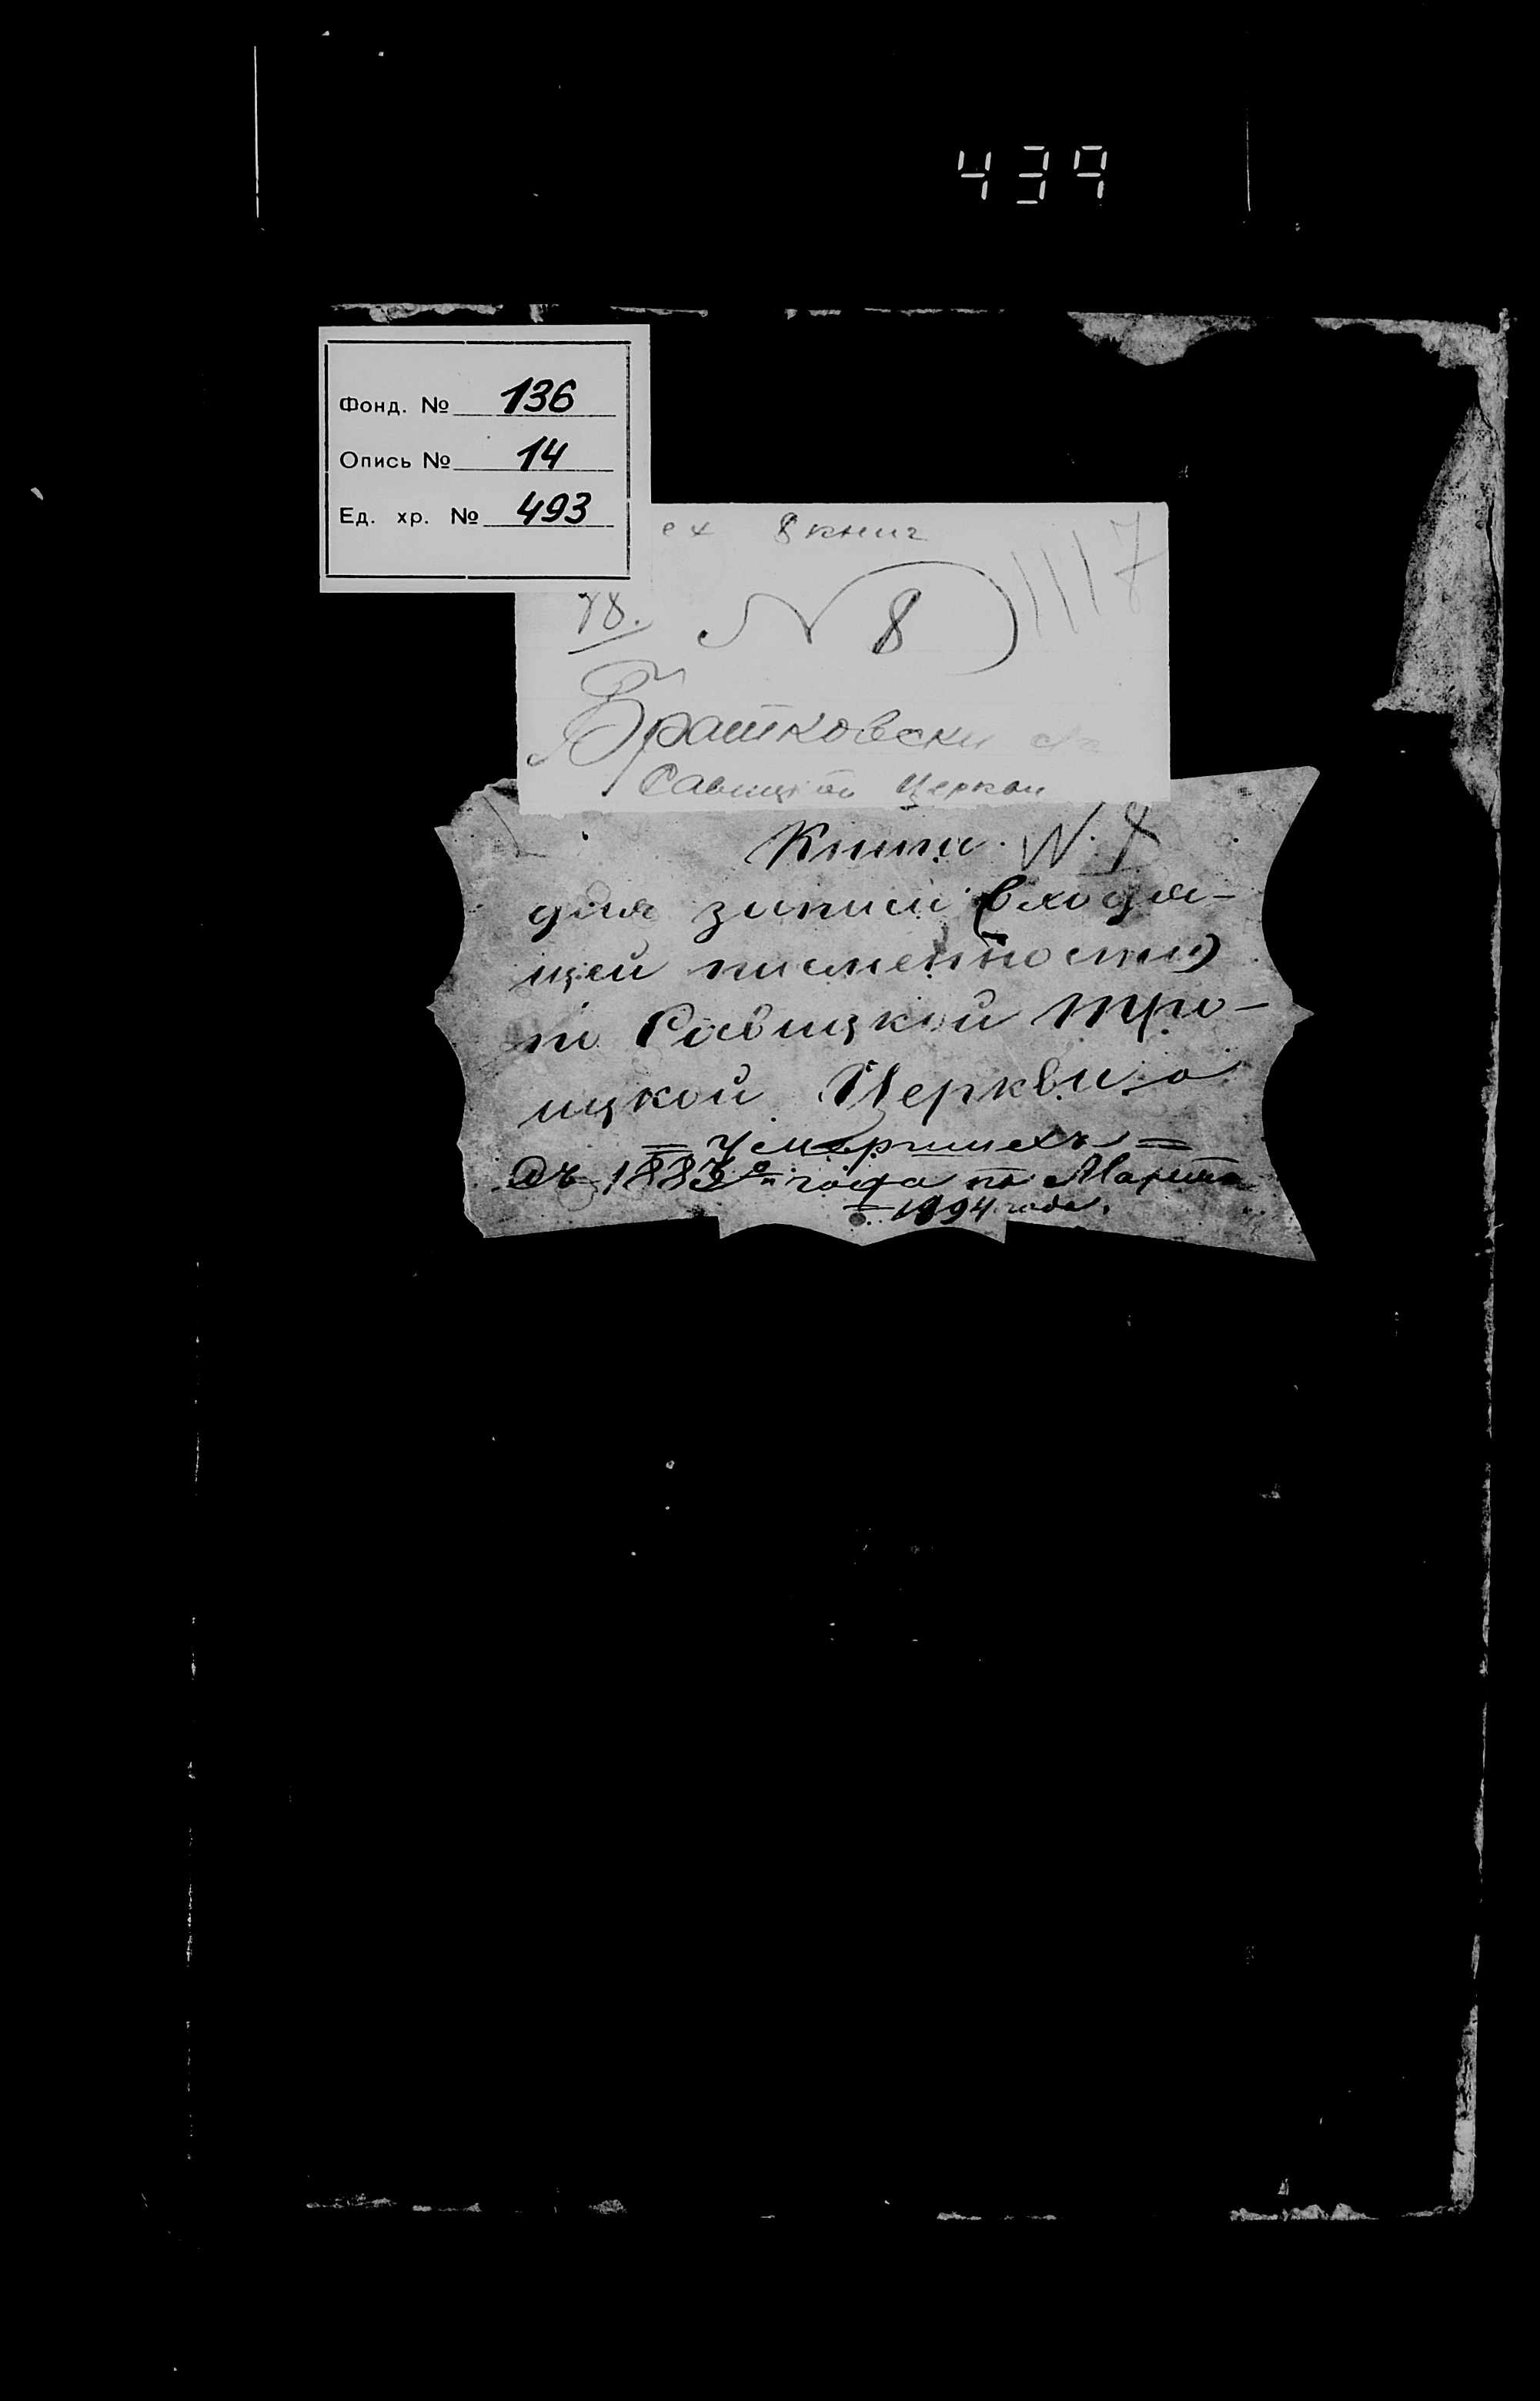 439
Фонд. № 136
Опись № 14
Ед. хр. № 493
ех 8 книг
1117
78.
N 8
Братковски
Савицкой Церкви
Книга. N. 8
для записи (входя-
щей писменности)
по Савицкой Тро-
ицкой Церкви о
= Умершихъ =
Съ 1883го года по Марта
= 1894 года.